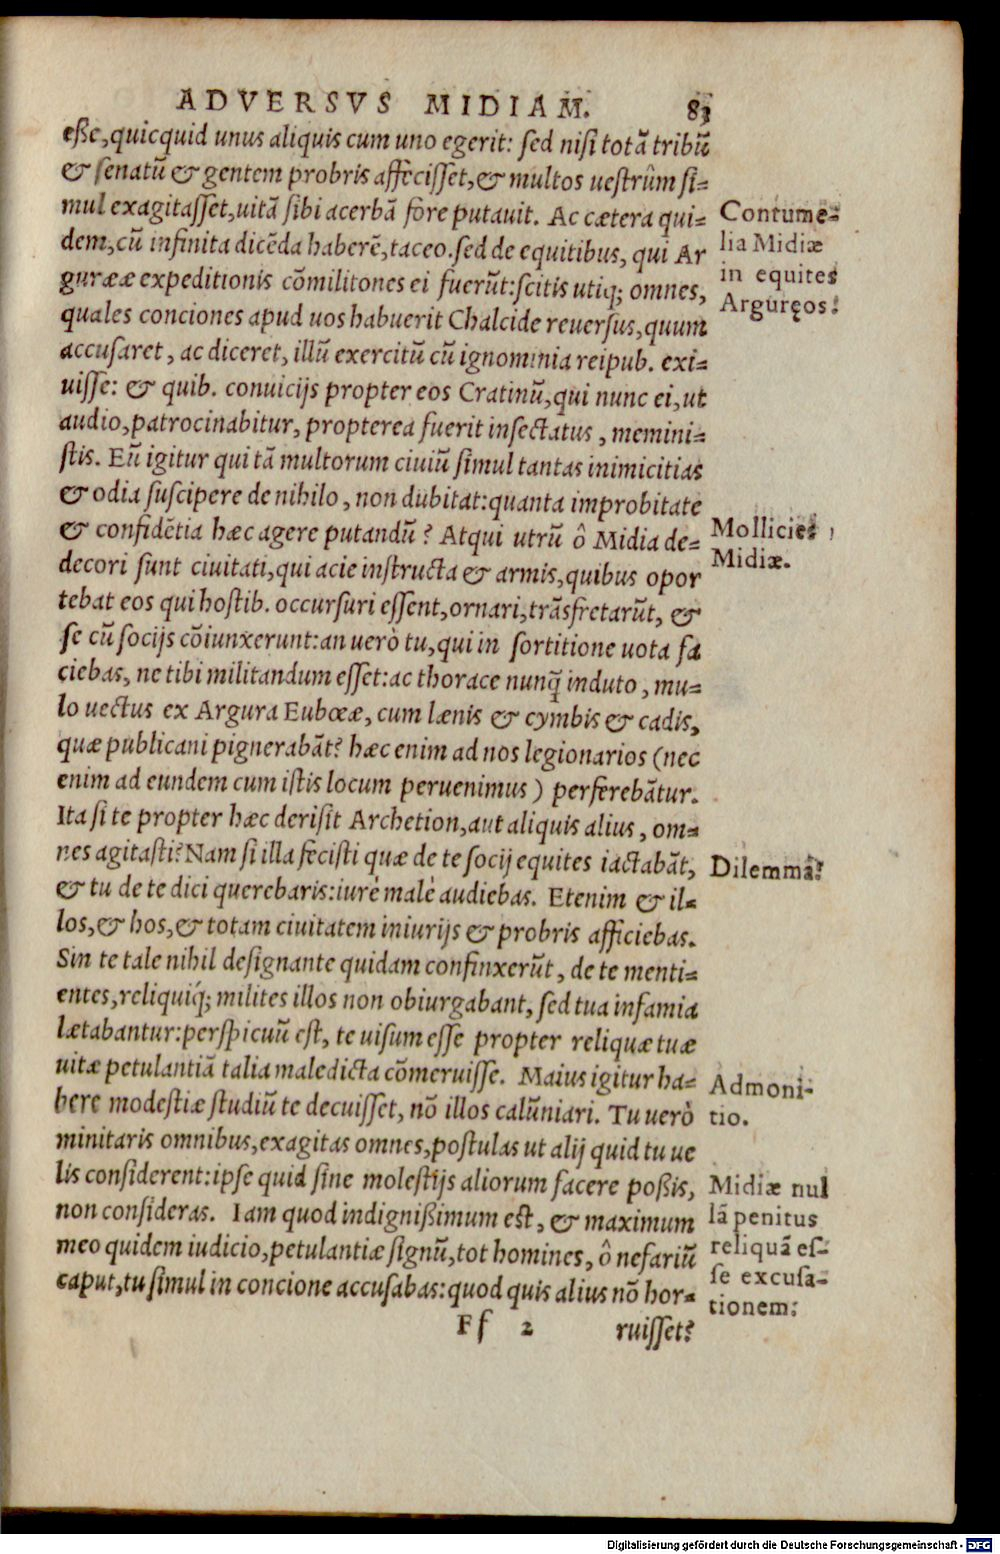 ADVERSVS MIDIAM. 83
eße, quicquid unus aliquis cum uno egerit: sed nisi totā tribū
& senatū & gentem probris affecisset, & multos uestrûm si-
mul exagitasset, uitā sibi acerbā fore putauit. Ac cætera qui-
dem, cū infinita dicēda haberē, taceo. sed de equitibus, qui Ar
gurææ expeditionis cōmilitones ei fuerūt: scitis utiq; omnes,
quales conciones apud uos habuerit Chalcide reuersus, quum
accusaret, ac diceret, illū exercitū cū ignominia reipub. exi-
uisse: & quib. conuicijs propter eos Cratinū, qui nunc ei, ut
audio, patrocinabitur, propterea fuerit insectatus, memini-
stis. Eū igitur qui tā multorum ciuiū simul tantas inimicitias
& odia suscipere de nihilo, non dubitat: quanta improbitate
& confidētia hæc agere putandū? Atqui utrū ô Midia de-
decori sunt ciuitati, qui acie instructa & armis, quibus opor
tebat eos qui hostib. occursuri essent, ornari, trāsfretarūt, &
se cū socijs cōiunxerunt: an uerò tu, qui in sortitione uota fa
ciebas, ne tibi militandum esset: ac thorace nunq̄ induto, mu-
lo uectus ex Argura Eubœæ, cum lænis & cymbis & cadis,
quæ publicani pignerabāt? hæc enim ad nos legionarios (nec
enim ad eundem cum istis locum peruenimus) perferebātur.
Ita si te propter hæc derisit Archetion, aut aliquis alius, om-
nes agitasti? Nam si illa fecisti quæ de te socij equites iactabāt,
& tu de te dici querebaris: iurè malè audiebas. Etenim & il-
los, & hos, & totam ciuitatem iniurijs & probris afficiebas.
Sin te tale nihil designante quidam confinxerūt, de te menti-
entes, reliquiq́; milites illos non obiurgabant, sed tua infamia
lætabantur: perspicuū est, te uisum esse propter reliquæ tuæ
uitæ petulantiā talia maledicta cōmeruisse. Maius igitur ha-
bere modestiæ studiū te decuisset, nō illos calūniari. Tu uerò
minitaris omnibus, exagitas omnes, postulas ut alij quid tu ue
lis considerent: ipse quid sine molestijs aliorum facere poßis,
non consideras. Iam quod indignißimum est, & maximum
meo quidem iudicio, petulantiæ signū, tot homines, ô nefariū
caput, tu simul in concione accusabas: quod quis alius nō hor-
Ff 2 ruisset?
Contume-
lia Midiæ
in equites
Arguręos.
Mollicies
Midiæ.
Dilemma.
Admoni-
tio.
Midiæ nul
lā penitus
reliquā es-
se excusa-
tionem.
Digitalisierung gefördert durch die Deutsche Forschungsgemeinschaft - DFG